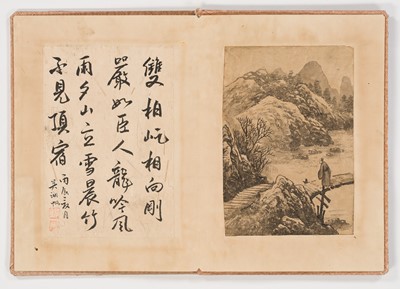 雙柏屹相向剛
嚴如臣人龍吟風
雨夕山立雪晨竹
不見頂宿
丙辰 月